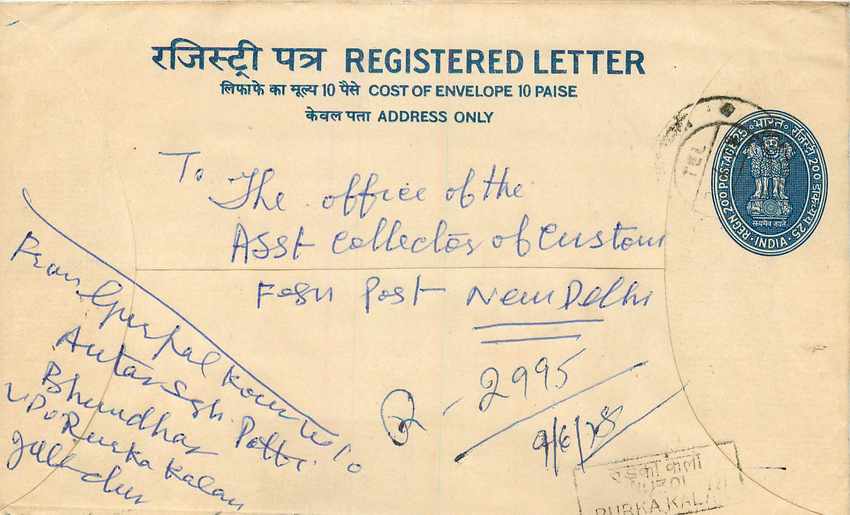 रजिस्ट्री पत्र REGISTERED LETTER
लिफाफे का मूल्य 10 पैसे COST OF ENVELOPE 10 PAISE
केवल पता ADDRESS ONLY
TEL
भारत रजिस्ट्री 200 डाक-व्यय 25
REGN 200 POSTAGE 25
सत्यमेव जयते
INDIA
To
The office of the
Asst Collector of Custom
Fogn Post New Delhi
From Gurpal Kaur W/o
Autar Sgh. Patti
Bhundhar
V.P.O Rurka Kalan
Jullundur
2995
9/6/
रुड़का कलां
RURKA KALA